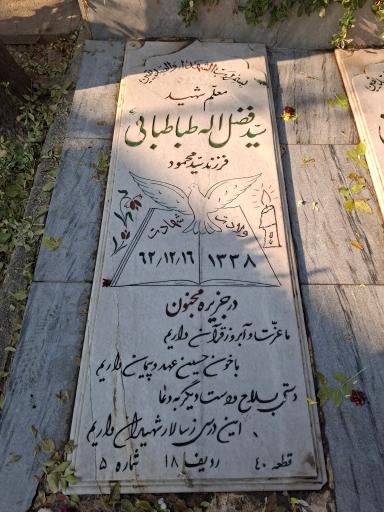 بسم رب الشهداء والصدیقین
معلم شهید
سید فضل اله طباطبائی
فرزند سید محمود
ولادت شهادت
۱۳۳۸ ۶۲/۱۲/۱۶
در جزیره مجنون
ما عزت و آبرو ز قرآن داریم
با خون حسین عهد و پیمان داریم
دستی به سلاح و دست دیگر به دعا
این درس ز سالار شهیدان داریم
قطعه ۴۰ ردیف ۱۸ شماره ۵